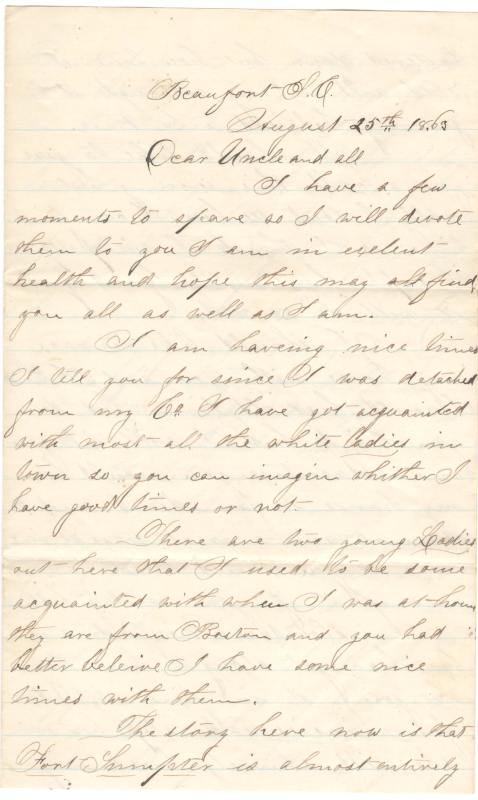 Beaufort S.C.
August 25th 1863
Dear Uncle and all
I have a few
moments to spare so I will devote
them to you I am in exelent
health and hope this may all find
you all as well as I am.
I am haveing nice times
I tell you for since I was detached
from my Co. I have got acquainted
with most all the white ladies in
town so you can imagin whither I
have good times or not.
There are two young Ladies
out here that I used to be some
acquainted with when I was at home
they are from Boston and you had
better beleive I have some nice
times with them.
The story here now is that
Fort Sumpter is almost entirely